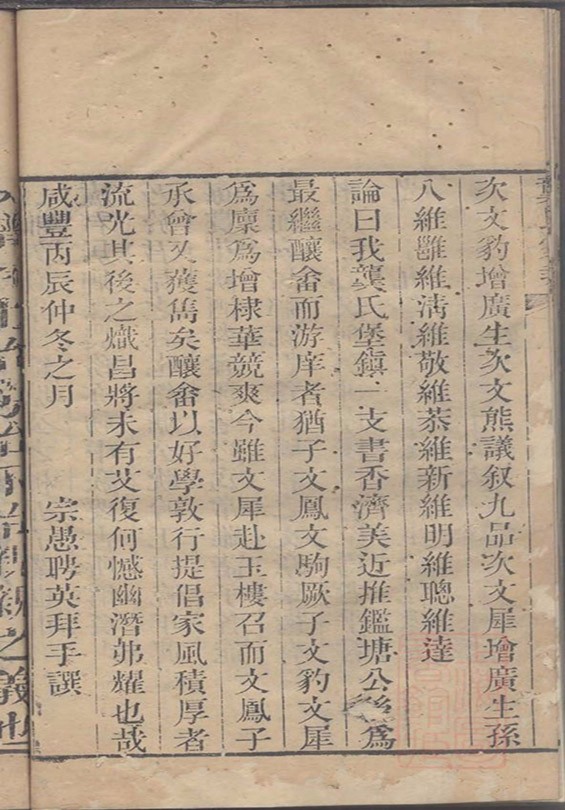 次文豹增廣生次文熊議叙九品次文犀增廣生孫
八維雝維淸維敬維恭維新維明維聰維達
論曰我龔氏堡鎮一支書香濟美近推鑑塘公後爲
最繼釀畬而游庠者猶子文鳳文駒厥子文豹文犀
爲廩爲增棣華競爽今雖文犀赴玉樓召而文鳳子
承曾又獲雋矣釀畬以好學敦行提倡家風積厚者
流光其後之熾昌將未有艾復何憾幽潛弗耀也哉
咸豐丙辰仲冬之月
宗愚聘英拜手譔